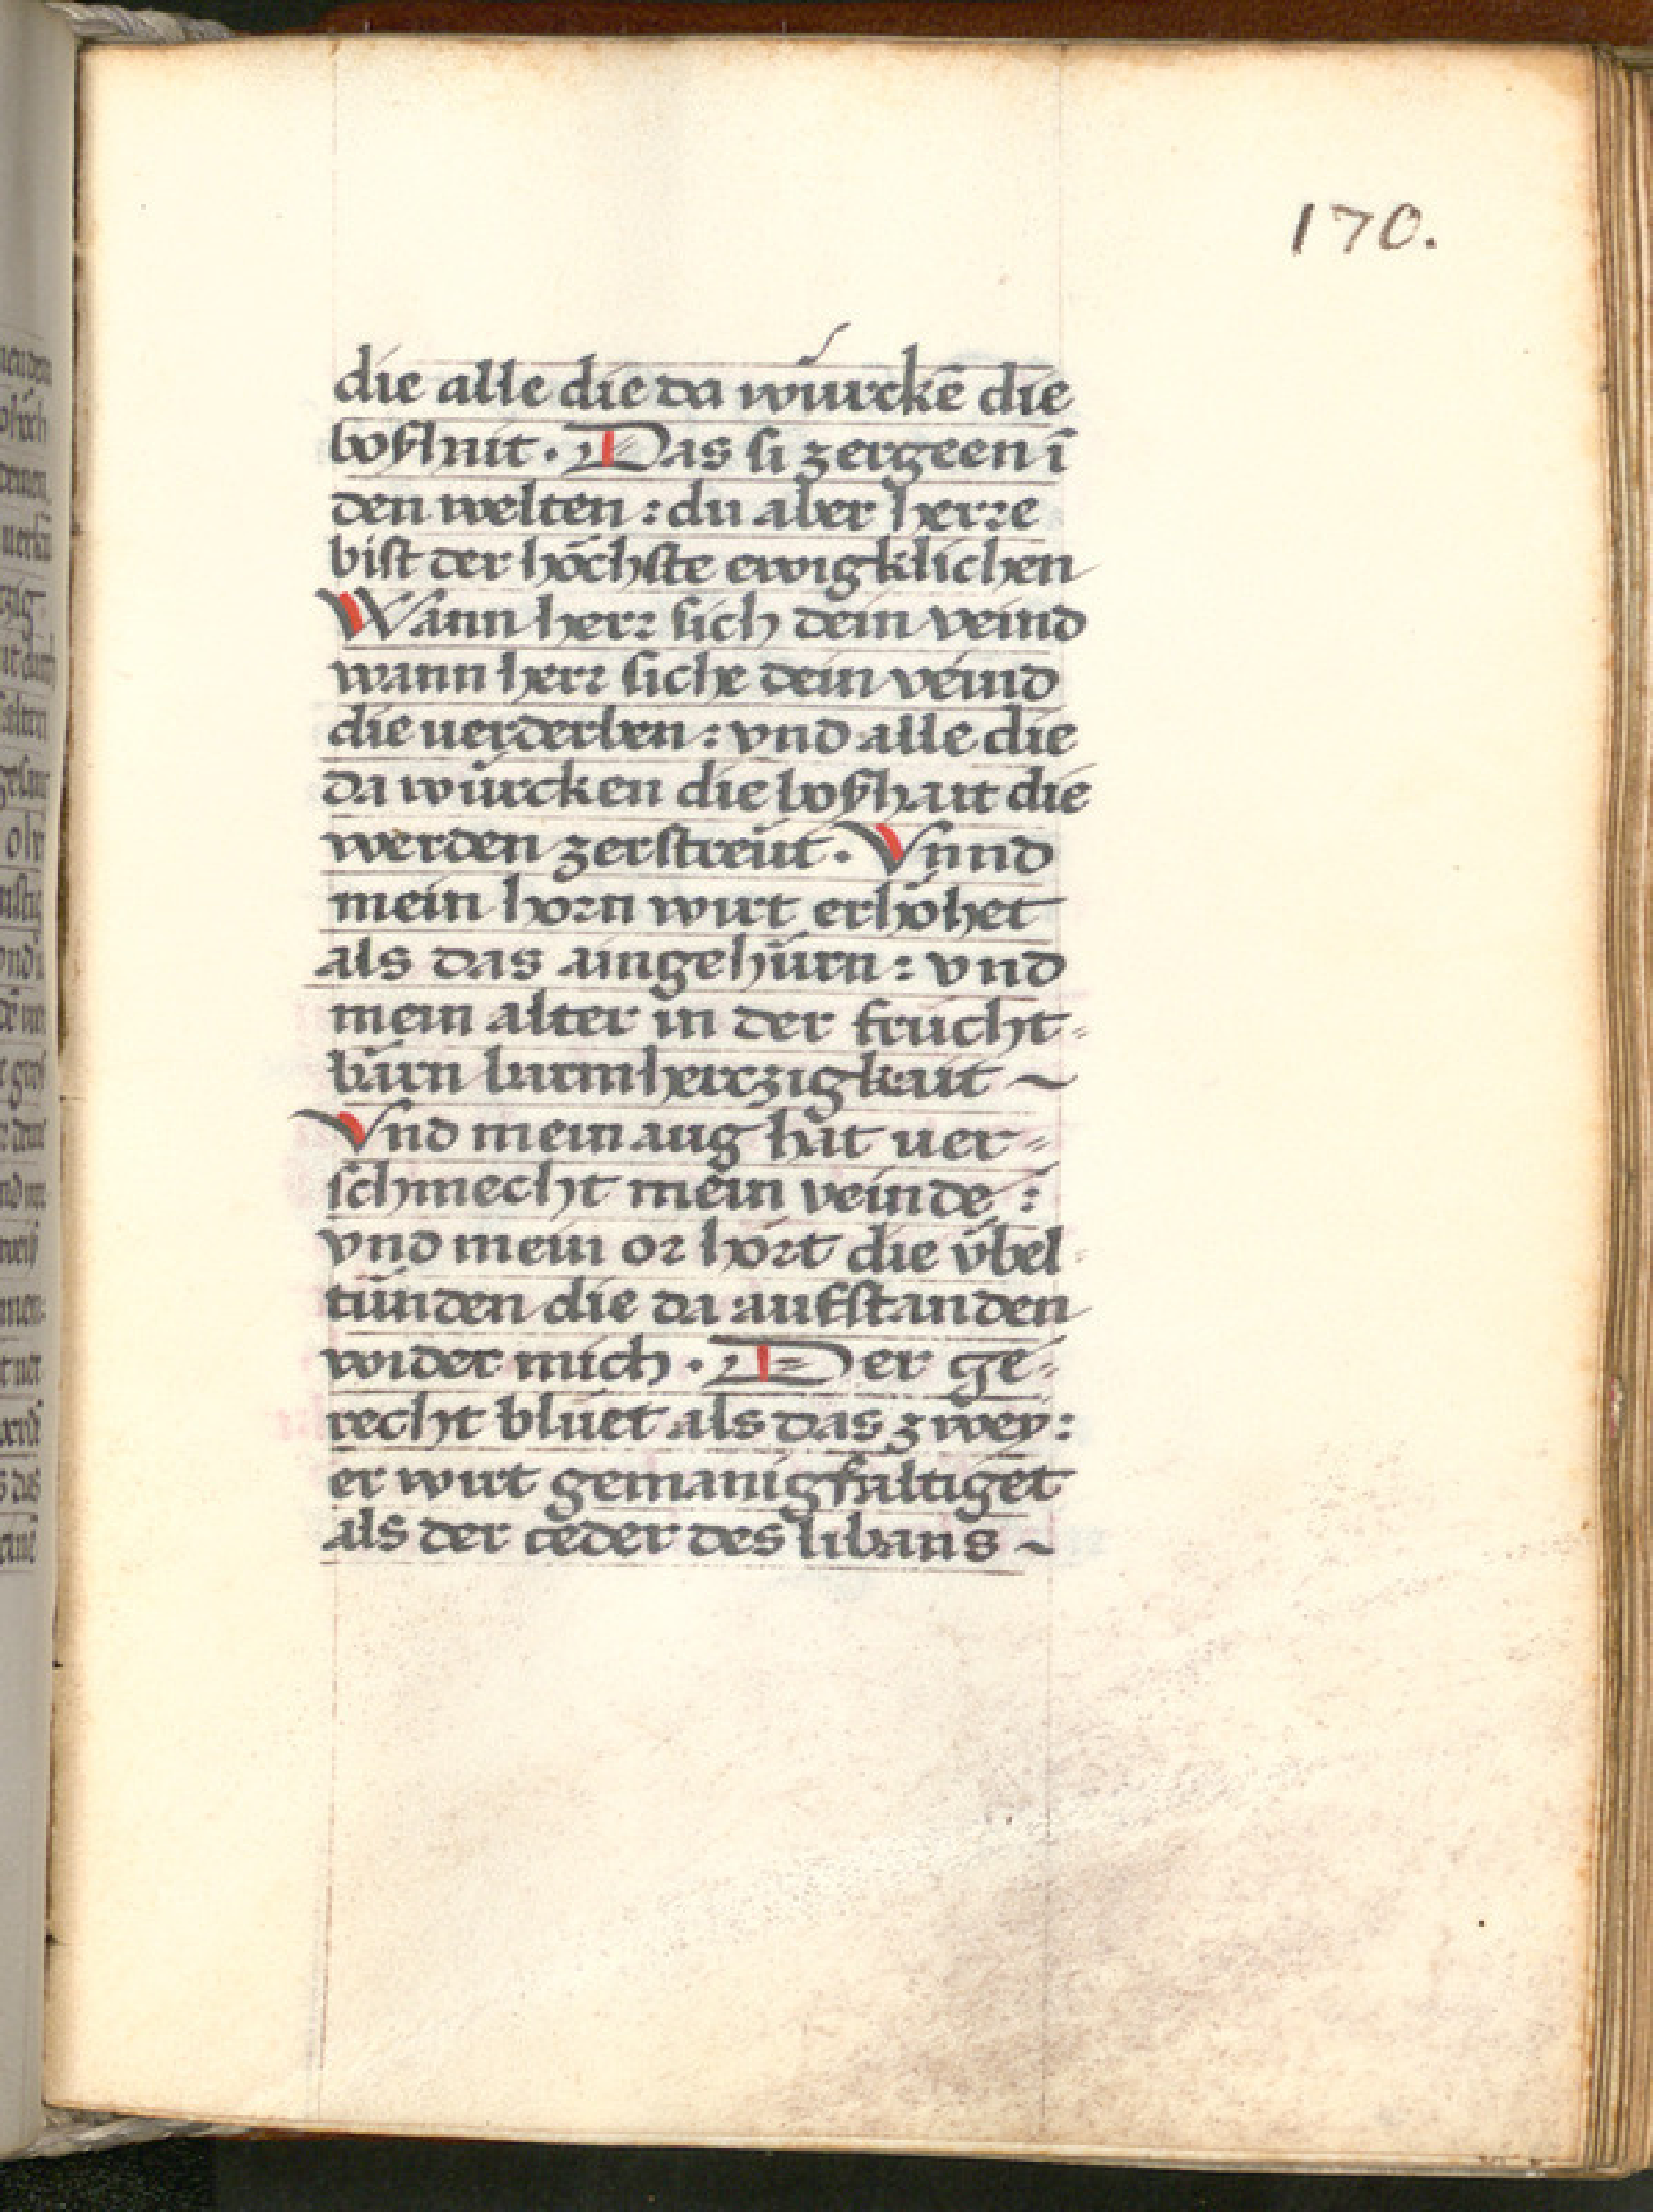 170.
die alle die da würckē die
boßhait · Das si zergeen ī
den welten : du aber herre
bist der höchste ewigklichen
Wann herr sich dein veind
wann herr siche dein veind
die uerderben : vnd alle die
da würcken die boßhait die
werden zerstreüt · Vnnd
mein horn wirt erhöhet
als das aingehürn : vnd
mein alter in der frücht⸗
barn barmherczigkait ~
Vnd mein aug hat uer⸗
schmecht mein veinde :
vnd mein or hört die übel⸗
tünden die da aufstanden
wider mich · Der ge⸗
recht blüet als das zwey :
er wirt gemanigfaltiget
als der ceder des libans ~